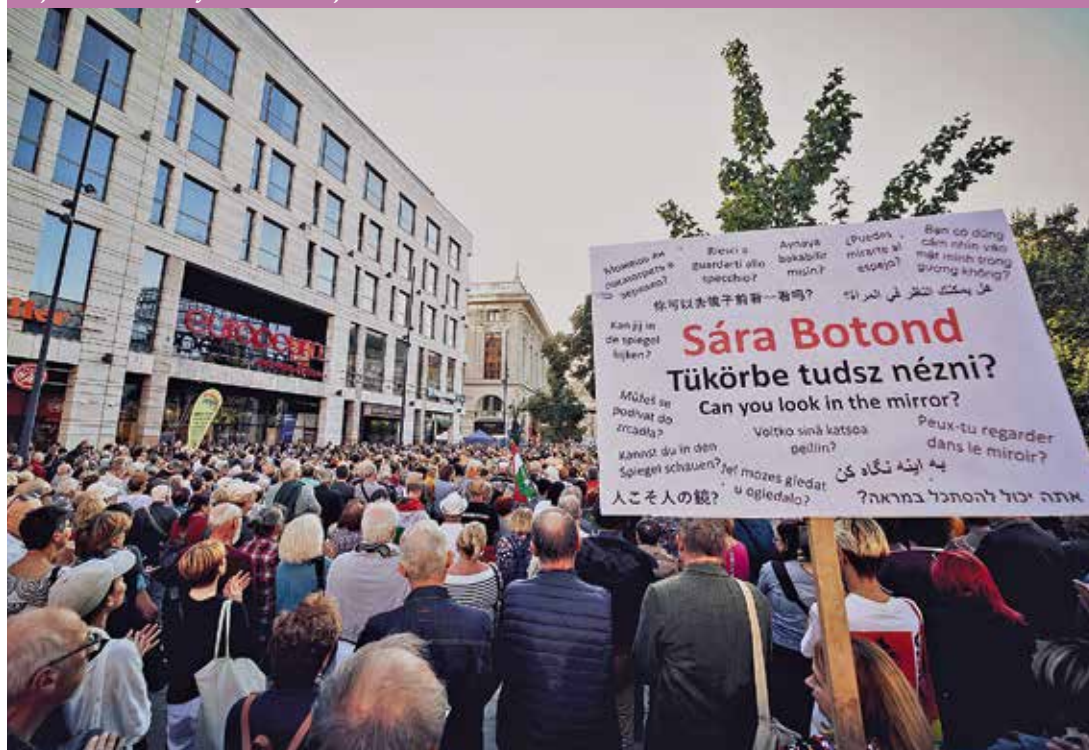 Riesci a
guardarti allo
specchio?
Aynaya
bakabilir
misin?
¿Puedes
mirarte al
espejo?
Bạn có dũng
cảm nhìn vào
mặt mình trong
gương không?
你可以去镜子前看一看吗?
هل يمكنك النظر في المرآة؟
Kan jij in
de spiegel
kijken?
Sára Botond
Tükörbe tudsz nézni?
Can you look in the mirror?
Můžeš se
podívat do
zrcadla?
Voitko sinä katsoa
peiliin?
Peux-tu regarder
dans le miroir?
Kannst du in den
Spiegel schauen?
mozes gledat
u ogledalo?
به اینه نگاه کن
人こそ人の鏡?
אתה יכול להסתכל במראה?
europeum